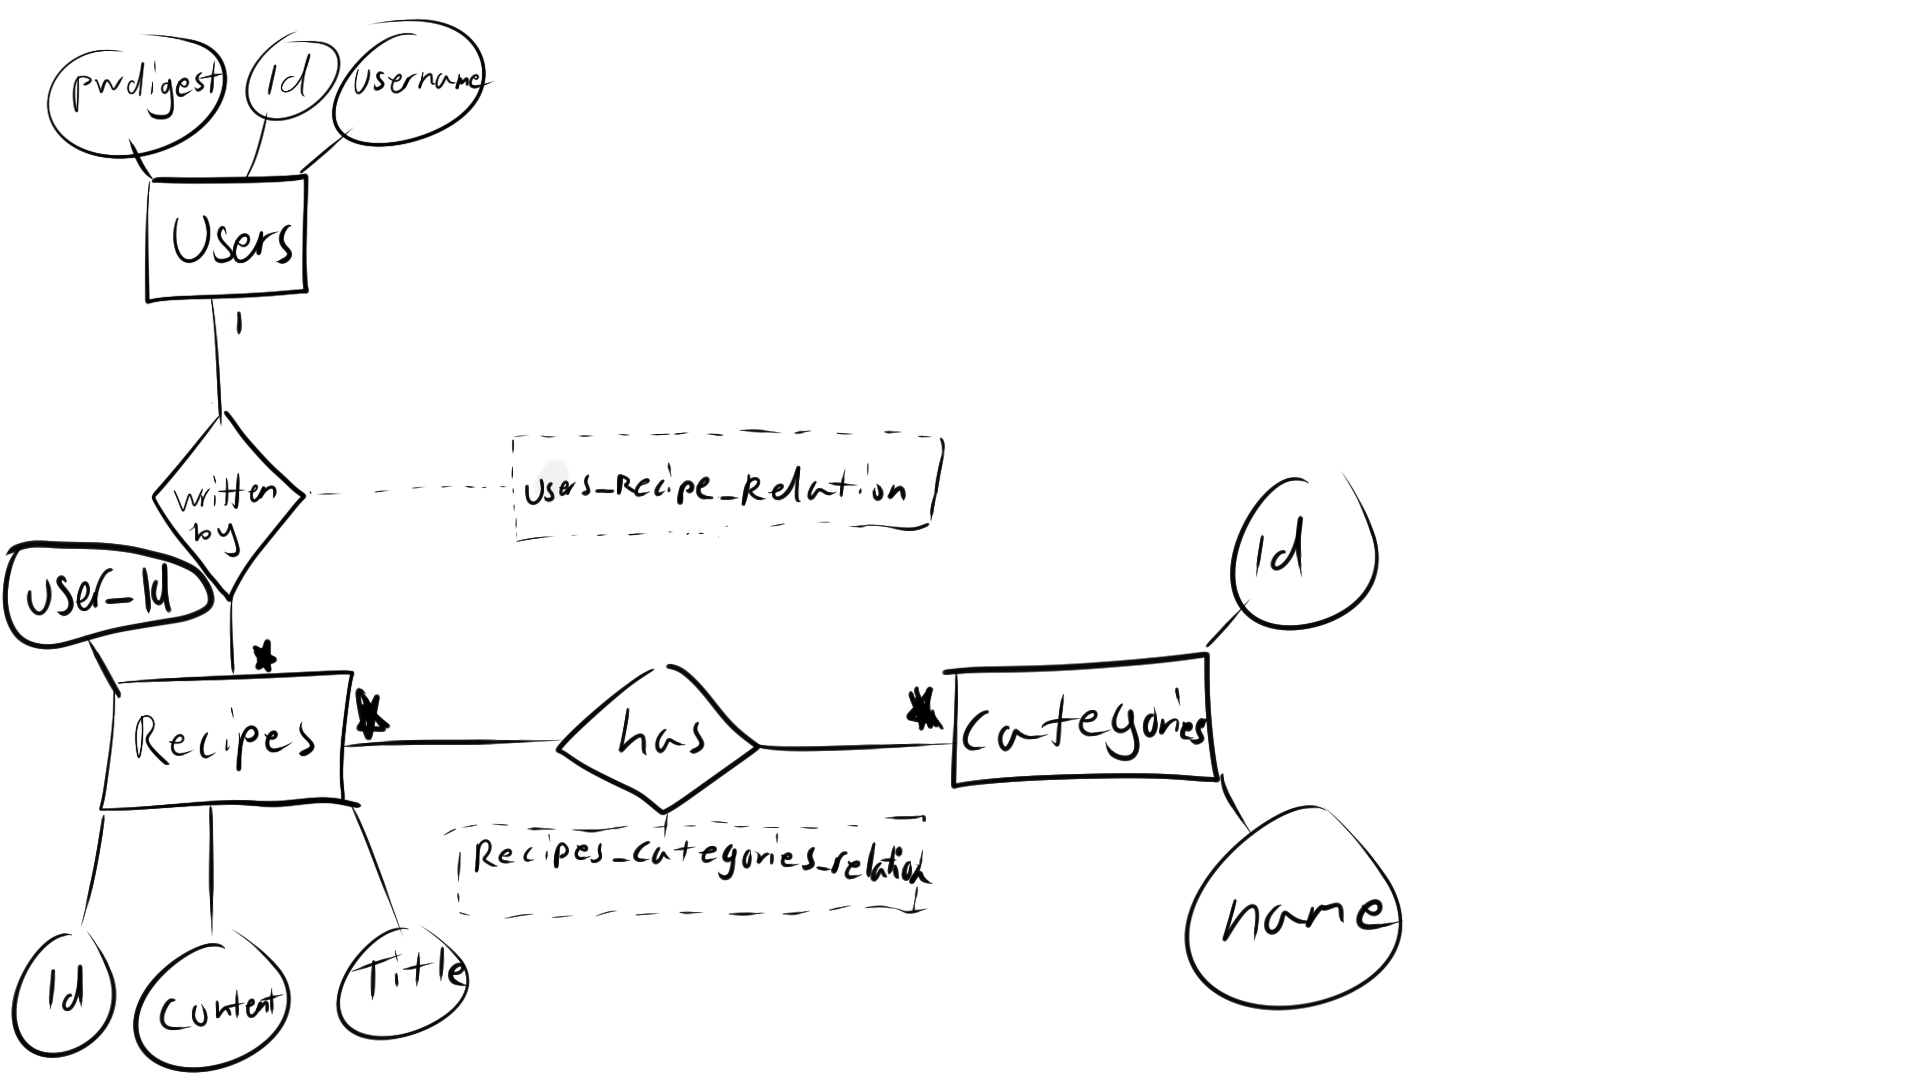 pwdigest
Id
username
Users
1
written
by
Users_Recipe_Relation
user_Id
*
Recipes
*
has
*
Categories
Id
Recipes_Categories_relation
name
Id
Content
Title